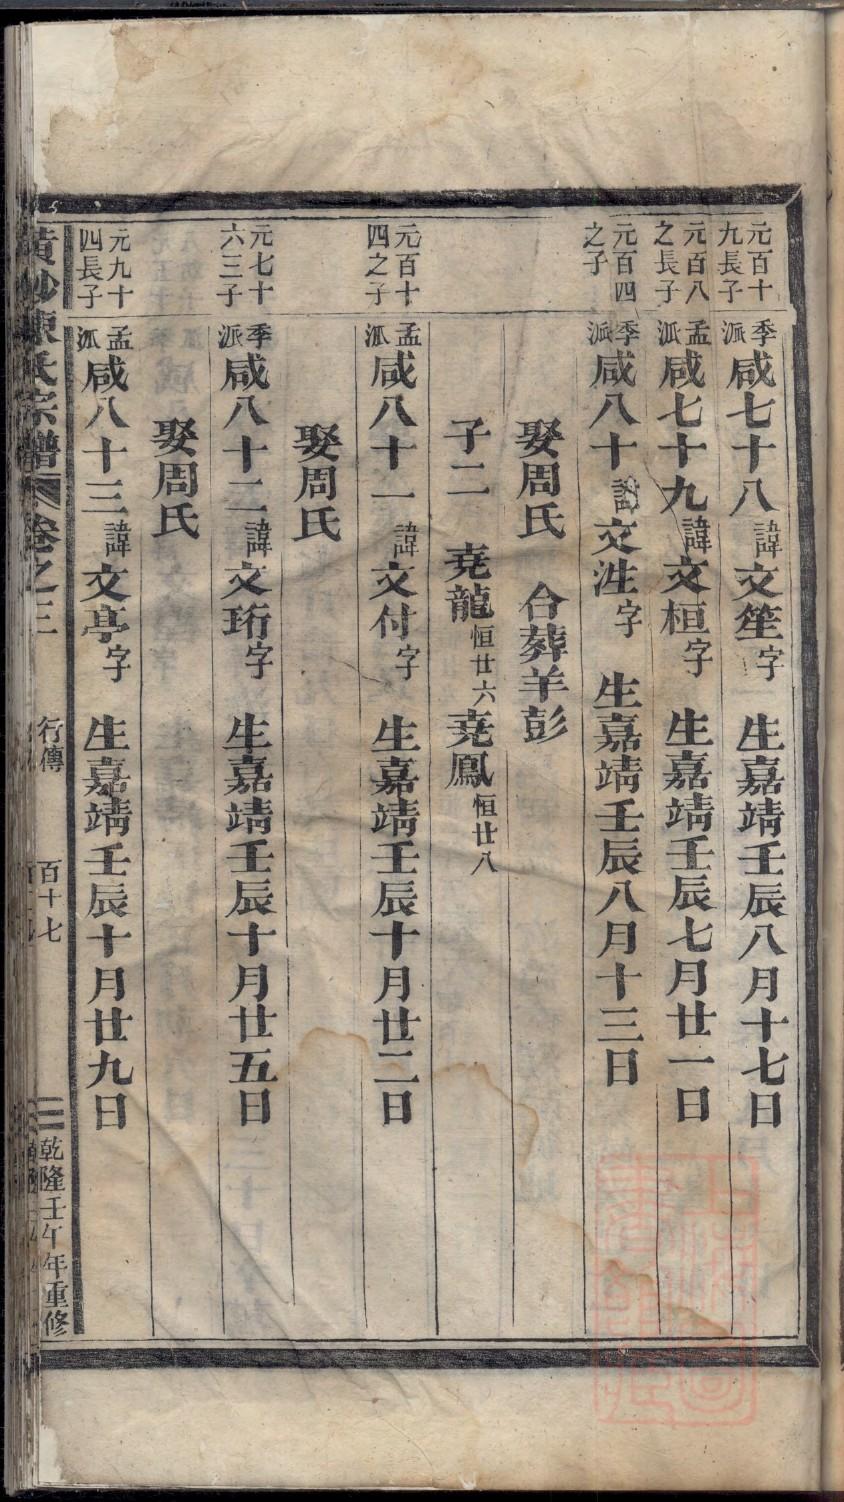 元百十九長子 季派 咸七十八 諱文笙字 生嘉靖壬辰八月十七日
元百八之長子 孟派 咸七十九 諱文桓字 生嘉靖壬辰七月廿一日
元百四之子 季派 咸八十 諱文泩字 生嘉靖壬辰八月十三日
娶周氏 合葬羊彭
子二 堯龍恒廿六 堯鳳恒廿八
元百十四之子 孟派 咸八十一 諱文付字 生嘉靖壬辰十月廿二日
娶周氏
元七十六三子 季派 咸八十二 諱文珩字 生嘉靖壬辰十月廿五日
娶周氏
元九十四長子 孟派 咸八十三 諱文亭字 生嘉靖壬辰十月廿九日
陳氏宗譜 卷之三 行傳 百十七 乾隆壬午年重修